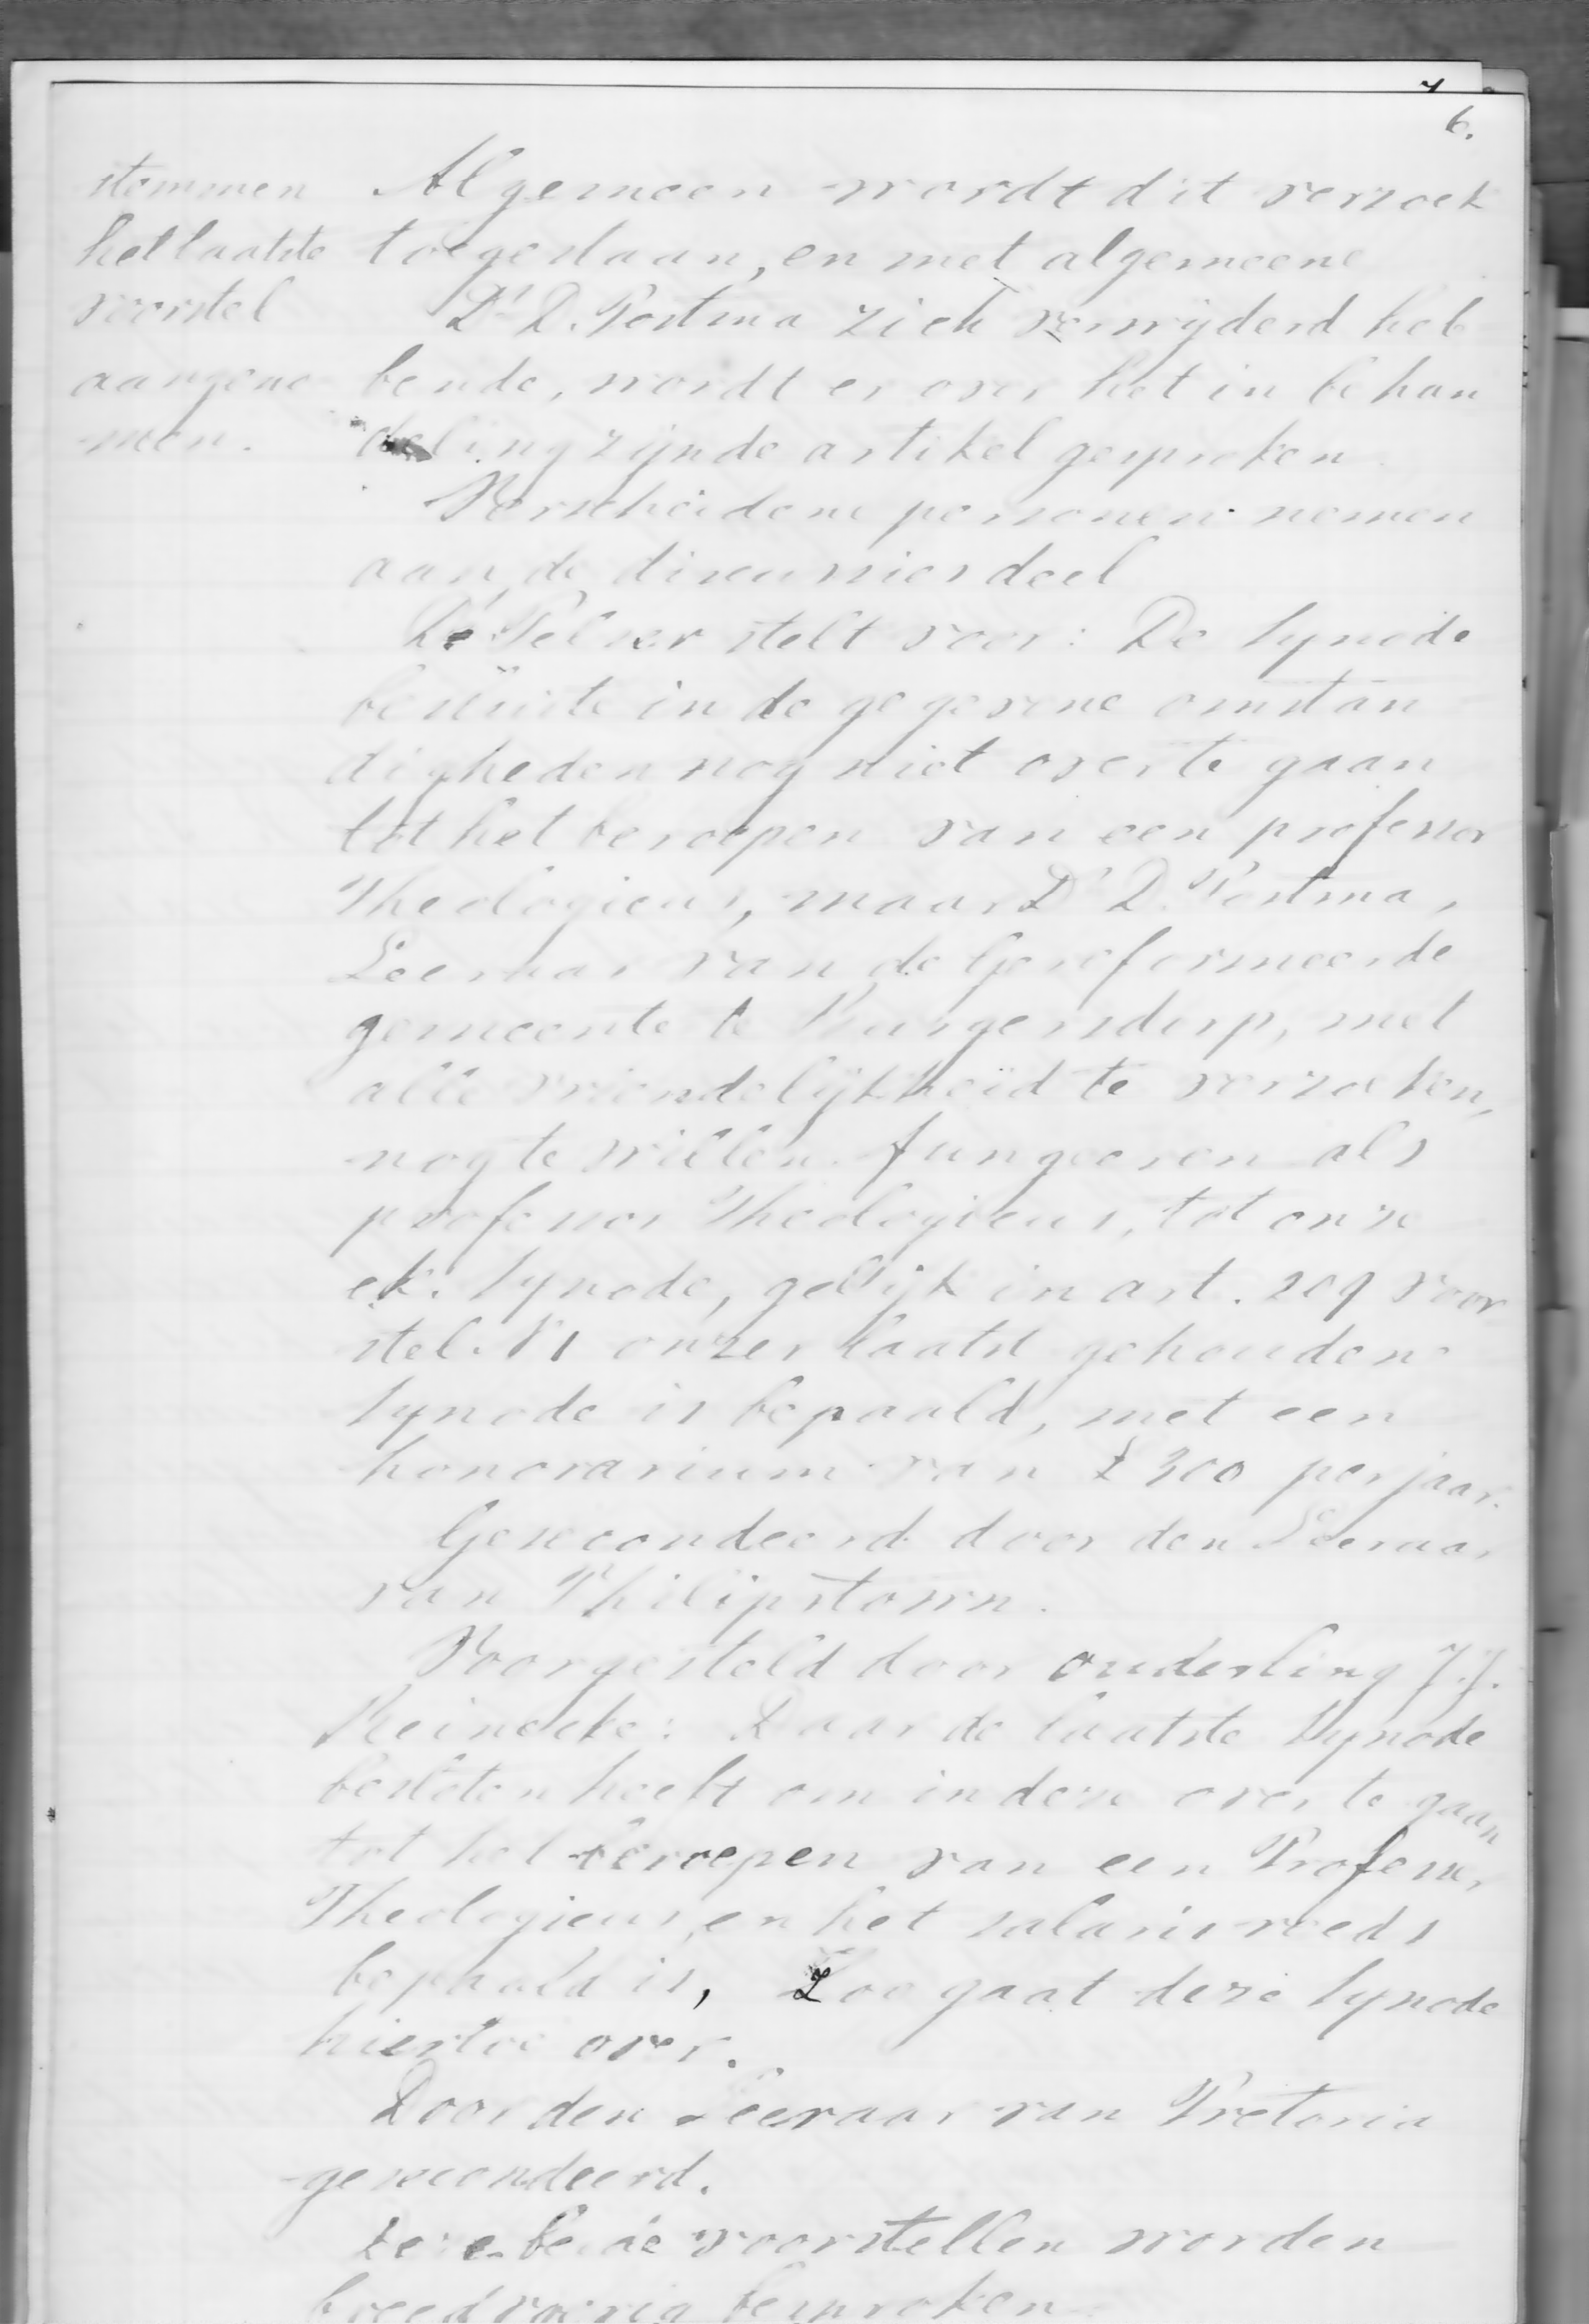 6.
stemmen
het laatste
voorstel
aangeno
men.
Algemeen wordt dit verzoek
toegestaan, en met algemeene
Ds D. Postma zich verwyderd heb
bende, wordt er over het in behan
deling zijnde artikel gesproken
Verscheidene personen nemen
aan de discussies deel
Ds Pelser stelt voor: De Synode
besluite in de gegevene omstan
digheden nog niet over te gaan
tot het beroepen van een professor
Theologicus, maar Ds D. Postma,
Leeraar van de Gereformeerde
gemeente te Burgersdorp, met
alle vriendelijkheid te verzoeken,
nog te willen fungeeren als
professor Theologicus, tot onze
ek. Synode, gelijk in art. 209 voor
stel N1 onzer laatst gehoudene
Synode is bepaald, met een
honorarium van £300 per jaar.
Gesecondeerd door den Leeraar
van Philipstown.
Voorgesteld door ouderling J.J.
Reinecke: Daar de laatste Synode
besloten heeft om in deze over te gaan
tot het beroepen van een Professor
Theologicus, en het salaris reeds
bepaald is, Zoo gaat deze Synode
hiertoe over.
Door den Leeraar van Pretoria
gesecondeerd.
Deze beide voorstellen worden
breedvoerig besproken